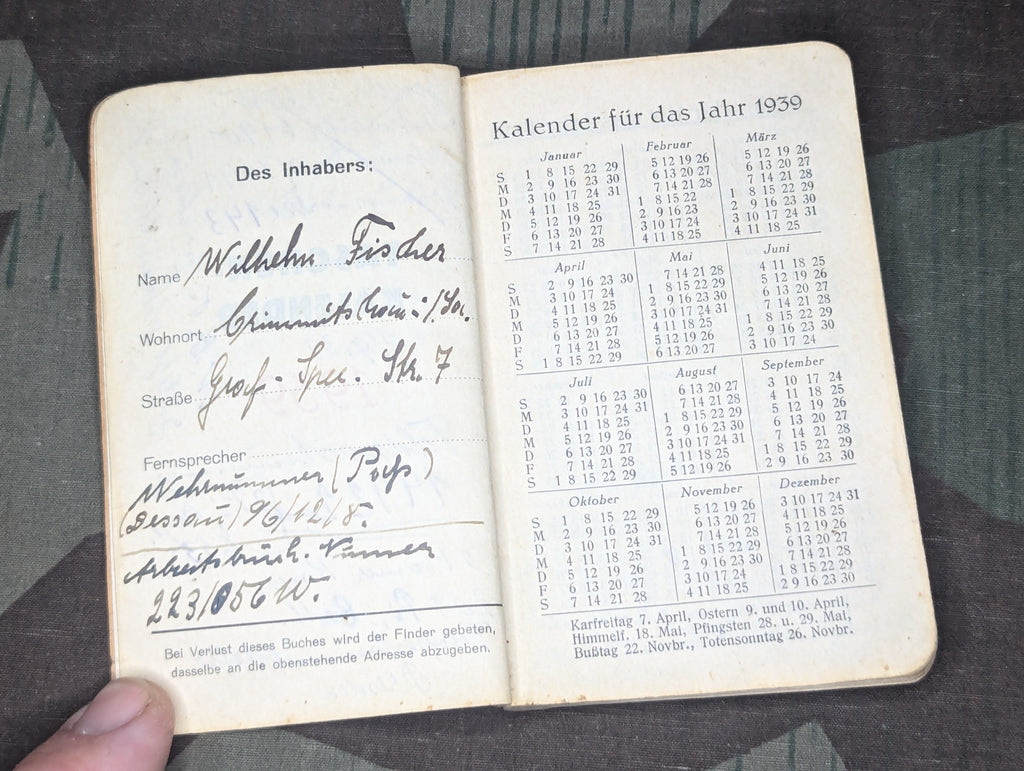 Des Inhabers:
Name Wilhelm Fischer
Wohnort Crimmitschau i/Sa.
Straße Graf-Spee-Str. 7
Fernsprecher
Wehrnummer (Paß)
(Dessau) 96/12/8.
Arbeitsbuch-Nummer
223/056 W.
Bei Verlust dieses Buches wird der Finder gebeten,
dasselbe an die obenstehende Adresse abzugeben.
Kalender für das Jahr 1939
Januar Februar März
S 1 8 15 22 29 5 12 19 26 5 12 19 26
M 2 9 16 23 30 6 13 20 27 6 13 20 27
D 3 10 17 24 31 7 14 21 28 7 14 21 28
M 4 11 18 25 1 8 15 22 1 8 15 22 29
D 5 12 19 26 2 9 16 23 2 9 16 23 30
F 6 13 20 27 3 10 17 24 3 10 17 24 31
S 7 14 21 28 4 11 18 25 4 11 18 25
April Mai Juni
S 2 9 16 23 30 7 14 21 28 4 11 18 25
M 3 10 17 24 1 8 15 22 29 5 12 19 26
D 4 11 18 25 2 9 16 23 30 6 13 20 27
M 5 12 19 26 3 10 17 24 31 7 14 21 28
D 6 13 20 27 4 11 18 25 1 8 15 22 29
F 7 14 21 28 5 12 19 26 2 9 16 23 30
S 1 8 15 22 29 6 13 20 27 3 10 17 24
Juli August September
S 2 9 16 23 30 6 13 20 27 3 10 17 24
M 3 10 17 24 31 7 14 21 28 4 11 18 25
D 4 11 18 25 1 8 15 22 29 5 12 19 26
M 5 12 19 26 2 9 16 23 30 6 13 20 27
D 6 13 20 27 3 10 17 24 31 7 14 21 28
F 7 14 21 28 4 11 18 25 1 8 15 22 29
S 1 8 15 22 29 5 12 19 26 2 9 16 23 30
Oktober November Dezember
S 1 8 15 22 29 5 12 19 26 3 10 17 24 31
M 2 9 16 23 30 6 13 20 27 4 11 18 25
D 3 10 17 24 31 7 14 21 28 5 12 19 26
M 4 11 18 25 1 8 15 22 29 6 13 20 27
D 5 12 19 26 2 9 16 23 30 7 14 21 28
F 6 13 20 27 3 10 17 24 1 8 15 22 29
S 7 14 21 28 4 11 18 25 2 9 16 23 30
Karfreitag 7. April, Ostern 9. und 10. April,
Himmelf. 18. Mai, Pfingsten 28. u. 29. Mai,
Bußtag 22. Novbr., Totensonntag 26. Novbr.